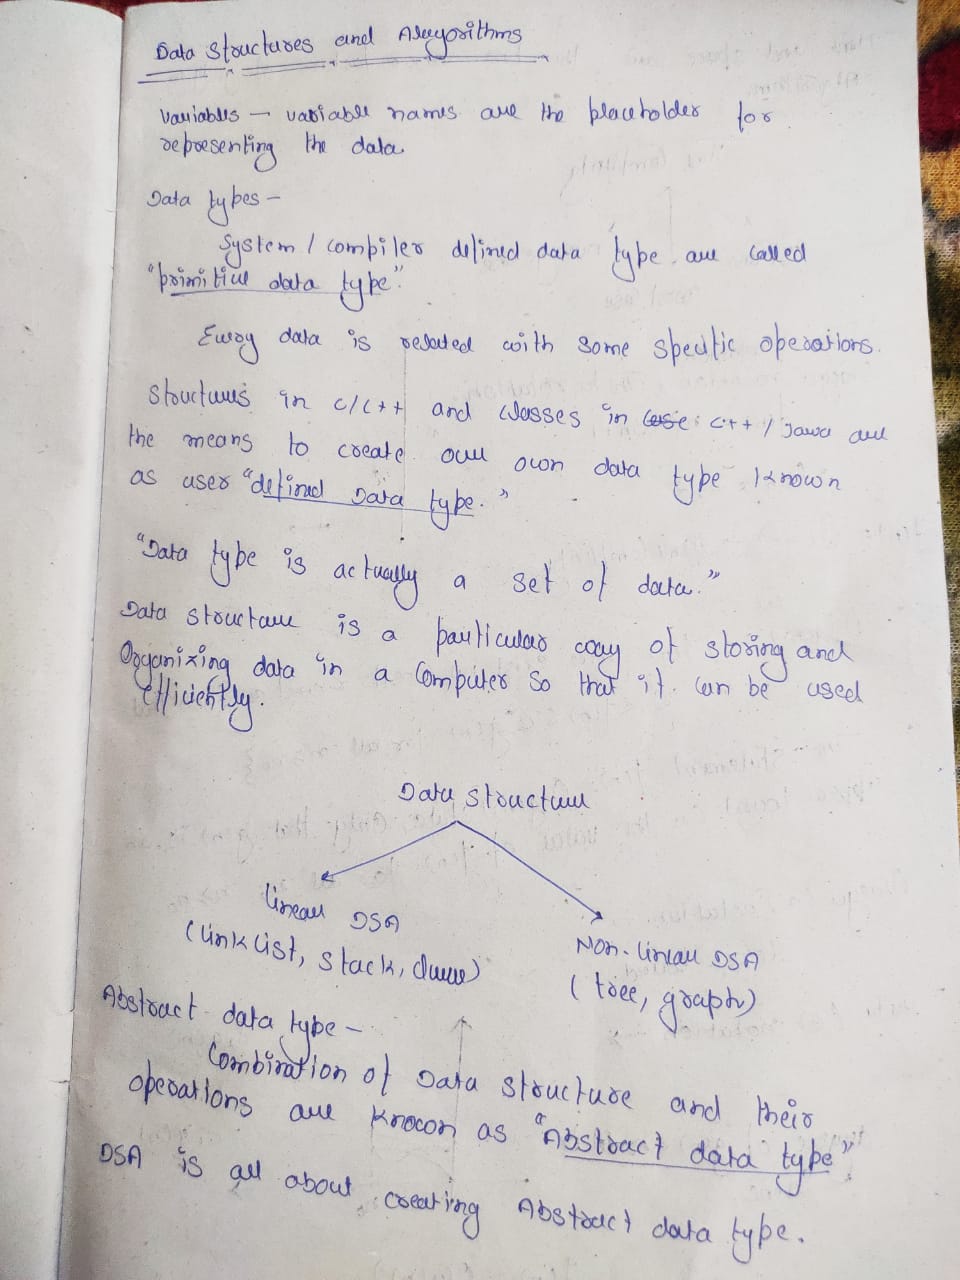 Data Structures and Algorithms
Variables — variable names are the placeholder for
representing the data
Data types —
System / compiler defined data type are called
"primitive data type".
Every data is related with some specific operations.
Structures in C/C++ and classes in C++ / Java are
the means to create our own data type known
as user "defined Data type."
"Data type is actually a set of data."
Data structure is a particular way of storing and
Organizing data in a computer so that it can be used
efficiently.
Data Structure
Linear DSA
(link list, stack, Queue)
Non-linear DSA
(tree, graph)
Abstract data type —
Combination of Data structure and their
operations are known as "Abstract data type"
DSA is all about creating Abstract data type.